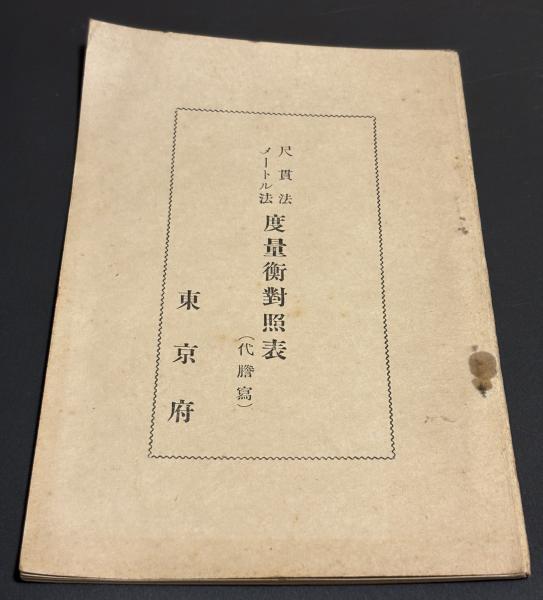 尺貫法
メートル法
度量衡對照表
(代謄寫)
東京府